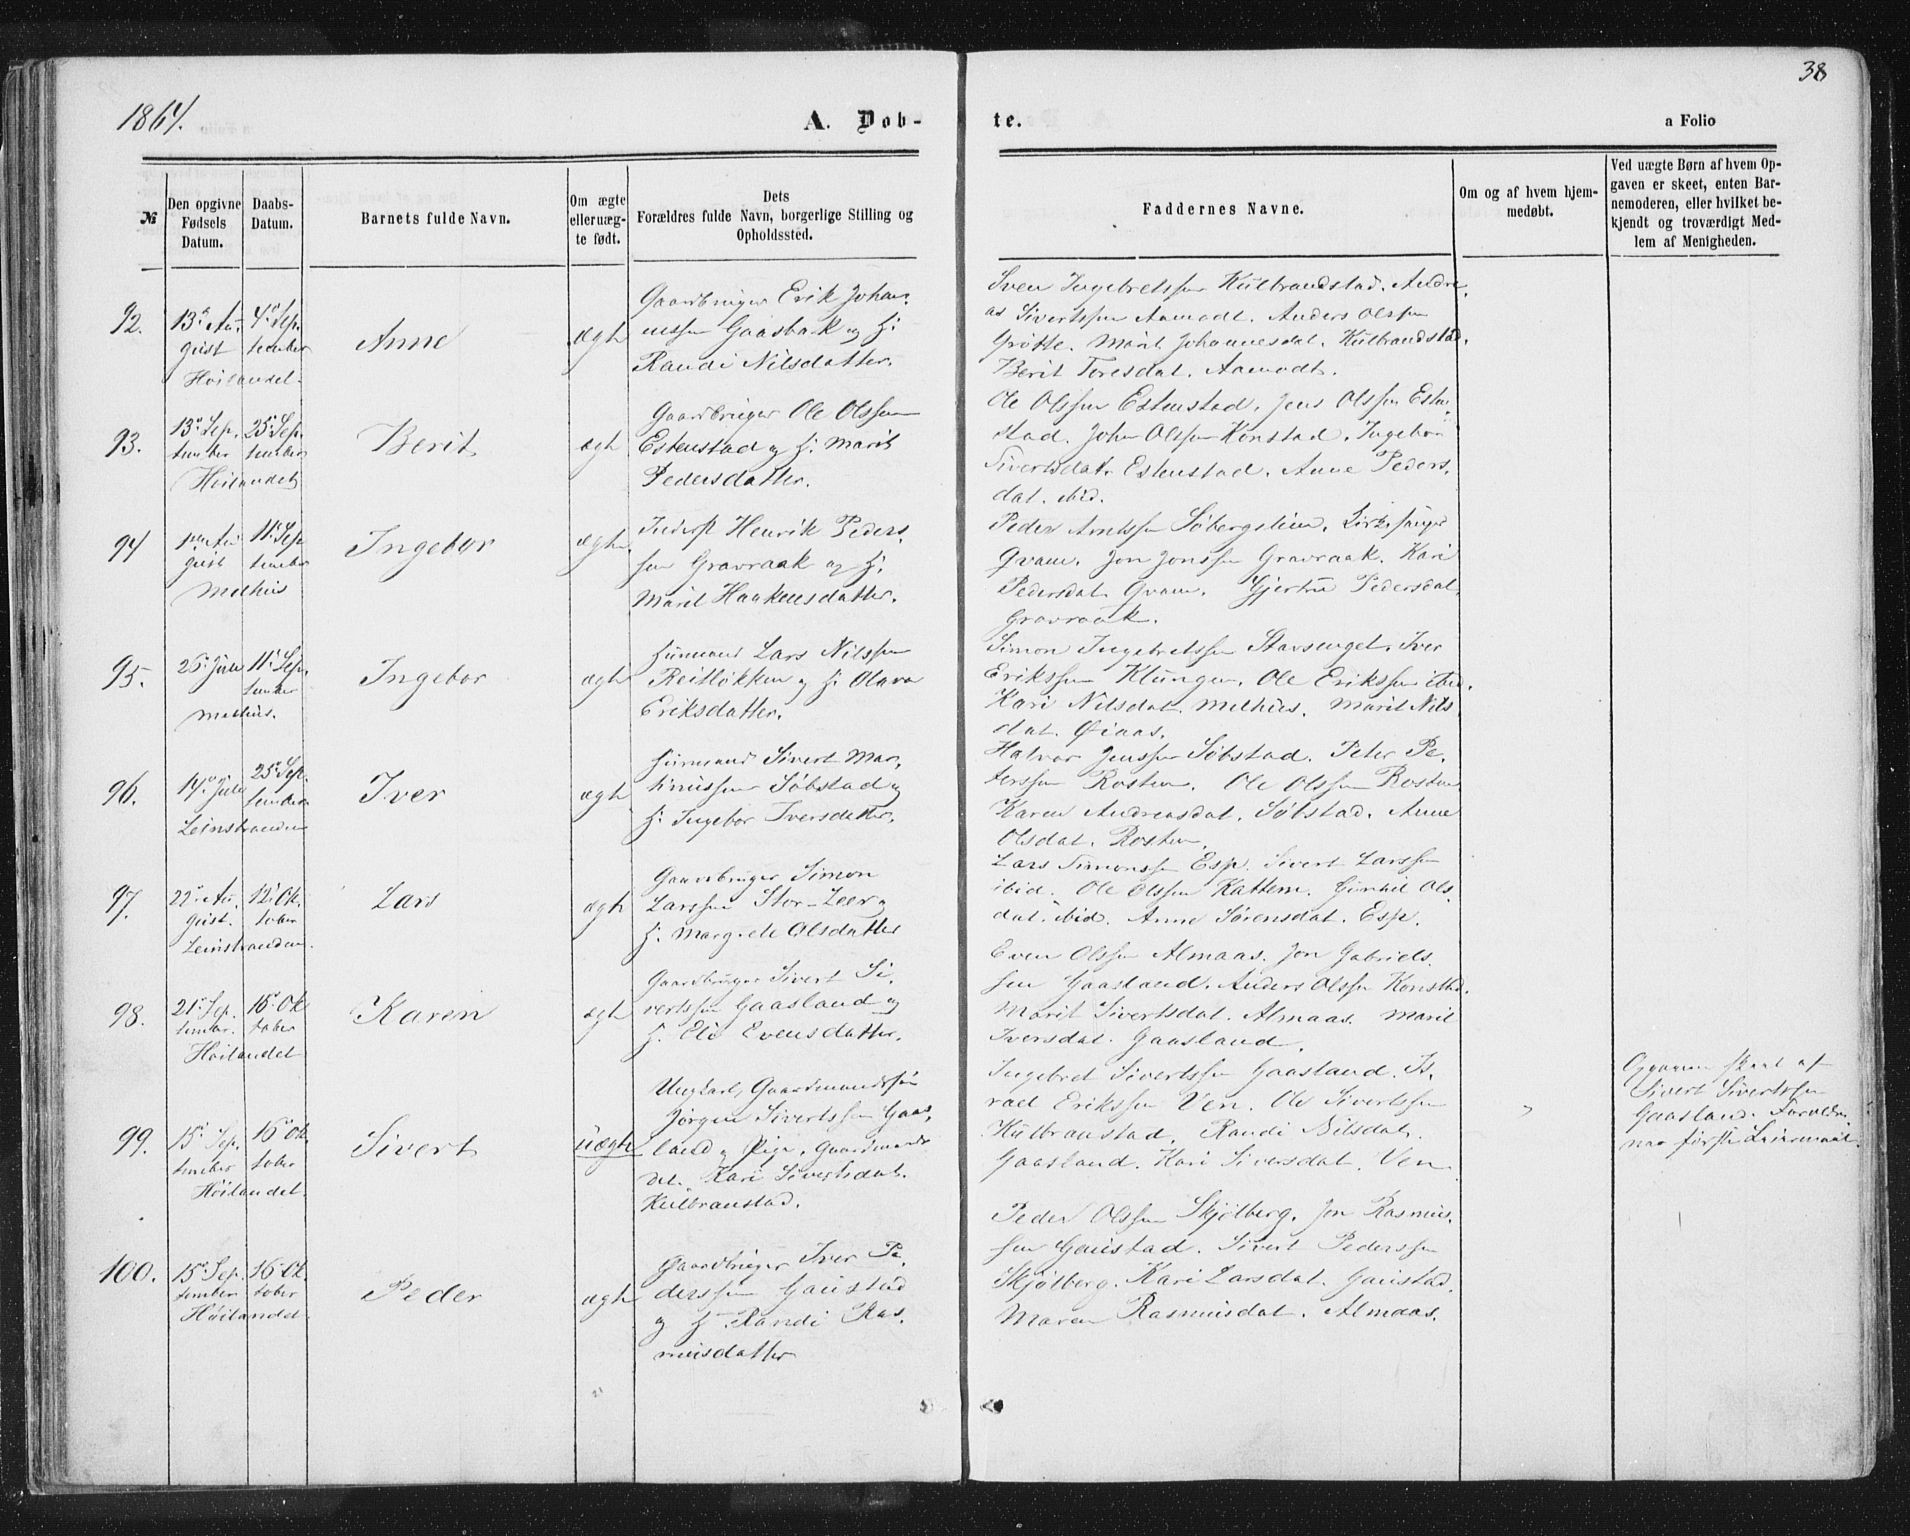 1864.
A. Døb-
te.
a Folio
38
№
Den opgivne
Fødsels
Datum.
Daabs-
Datum.
Barnets fulde Navn.
Om ægte
eller uæg-
te født.
Dets
Forældres fulde Navn, borgerlige Stilling og
Opholdssted.
Faddernes Navne.
Om og af hvem hjem-
medøbt.
Ved uægte Børn af hvem Op-
gaven er skeet, enten Bar-
nemoderen, eller hvilket be-
kjendt og troværdigt Med-
lem af Menigheden.
92.
13de Au-
gust
Höilandet.
4de Sep-
tember
Anne
ægte
Gaardbruger Erik Johan-
nessen Gaasbak og H.
Randi Nilsdatter.
Sven Ingebretssen Kulbrandstad. Andre-
as Sivertssen Aamodt. Anders Olssen
Grötte. Marit Johannesdat. Kulbrandstad.
Berit Toresdat. Aamodt.
93.
13de Sep-
tember
Höilandet
25de Sep-
tember
Berit
ægte
Gaardbruger Ole Olssen
Estenstad og H. Marit
Pedersdatter.
Ole Olssen Estenstad. Jens Olssen Esten-
stad. John Olssen Konstad. Ingebor
Sivertsdat. Estenstad. Anne Peders-
dat. ibid.
94
Au-
gust
Melhus
11te Sep-
tember
Ingebor
ægte
Inderst Henrik Peders-
sen Gravraak og H.
Marit Haakensdatter.
Peder Arntssen Söbergslien. Kirkesanger
Qvam. Jon Jonssen Gravraak. Kari
Pedersdat. Qvam. Gjertru Pedersdat.
Gravraak.
95.
26de Juli
Melhus.
11te Sep-
tember
Ingebor
ægte
Husmand Lars Nilssen
Reitlökken og H. Olava
Eriksdatter.
Simon Ingebretssen Stavsenget. Iver
Erikssen Klungen. Ole Erikssen ibid.
Kari Nilsdat. Melhus. Marit Nils-
dat. Øiaas.
96.
14de Juli
Leinstranden
25de Sep-
tember
Iver
ægte
Husmand Sivert Mar-
kussen Söbstad og
H. Ingebor Iversdatter.
Halvor Jenssen Söbstad. Peter Pe-
terssen Rosten. Ole Olssen Rosten
Karen Andreasdat. Söbstad. Anne
Olsdat. Rosten.
97.
22de Au-
gust.
Leinstranden.
12te Ok-
tober
Lars
ægte
Gaardbruger Simon
Larssen Stor-Leer og
H. Margrete Olsdatter
Lars Simonssen Esp. Sivert Larssen
ibid. Ole Olssen Kattem. Gunhil Ols-
dat. ibid. Anne Sörensdat. Esp.
98.
21de Sep-
tember.
Höilandet
16de Ok-
tober
Karen
ægte
Gaardbruger Sivert Si-
vertssen Gaasland og
H. Eli Evensdatter.
Even Olssen Almaas. Jon Gabriels-
sen Gaasland. Anders Olssen Konstad.
Marit Sivertsdat. Almaas. Marit
Iversdat. Gaasland.
99.
15de Sep-
tember
Höilandet.
16de Ok-
tober
Sivert
uægte
Ungkarl, Gaardmandssön
Jörgen Sivertssen Gaas-
land og Pige, Gaardmands-
dat. Kari Sivertsdat.
Kulbranstad.
Ingebret Sivertssen Gaasland. Is-
rael Erikssen Ven. Ole Sivertssen
Kulbranstad. Randi Nilsdat.
Gaasland. Kari Siversdat. Ven
Opgaven skeet af
Sivert Sivertssen
Gaasland. Foreldre-
nes förste Leiermaal.
100.
15de Sep-
tember
Höilandet
16de Ok-
tober
Peder
ægte
Gaardbruger Iver Pe-
derssen Gaustad
og H. Randi Ras-
musdatter
Peder Olssen Skjölberg. Jon Rasmus-
sen Gaustad. Sivert Pederssen
Skjölberg. Kari Larsdat. Gaustad.
Maren Rasmusdat. Almaas.